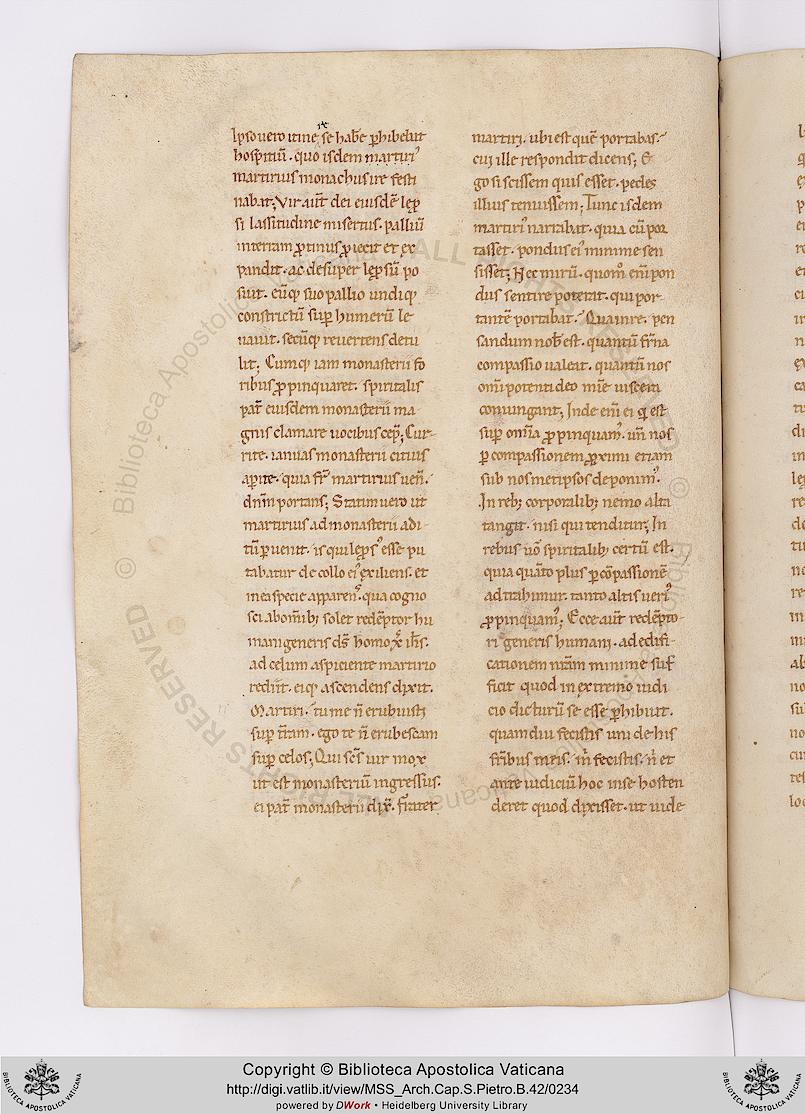 Ipso uero itine se habe ꝑhibebat
hospitiũ. quo isdem martiri᾽
martirius monachus ire festi
nabat; Vir aut̃ dei eiusdẽ lęp
si lassitudine misertus. palliũ
in terram ꝓtinus ꝓiecit et ex
pandit. ac desuper lęp sũ po
suit. eũq; suo pallio undiq;
constrictũ suꝑ humerũ le
uauit. secũq; reuertens detu
lit; Cumq; iam monasterii fo
ribus ꝓpinquaret. spiritalis
pat̃ eiusdem monasterii ma
gnis clamare uocibus cep̃; Cur
rite. ianuas monasterii citius
aꝑite. quia fr̃ martirius uen̂.
dñm portans; Statim uero ut
martirius ad monasterii adi
tũ ꝑuenit. is qui lęps᾽ esse pu
tabatur de collo ei᾽ exiliens. et
in ea specie apparen᾽. qua cogno
sci ab omĩb; solet redẽptor hu
mani generis ds̃ homo xp̃c ih̃s.
ad celum aspiciente martirio
rediit. eiq; ascendens dixit.
Martiri. tu me ñ erubuisti
suꝑ tr̃am. ego te ñ erubescam
suꝑ celos; Qui sc̃s uir mox
ut est monasteriũ ingressus.
ei pat̃ monasterii dix̃. frater
martiri. ubi est quẽ portabas?
cui ille respondit dicens; E
go si scissem quis esset. pedes
illius tenuissem; Tunc isdem
martiri᾽ narrabat. quia cũ por
tasset. pondus ei᾽ minime sen
sisset; Nec mirũ. quom̊ eñi pon
dus sentire poterat. qui por
tantẽ portabat. Qua in re. pen
sandum nob̃ est. quantũ fr̃na
compassio ualeat. quantũ nos
om̃ipotenti deo mĩe uiscera
coniungant; Inde eñi ei q̇ est
suꝑ om̃ia ꝓpinquam᾽. uñ nos
ꝑ compassionem ꝓximi etiam
sub nosmetipsos deponim᾽.
In reb; corporalib; nemo alta
tangit. nisi qui tenditur; In
rebus uo᷎ spiritalib; certũ est.
quia quãto plus ꝑ cõpassionẽ
adtrahimur. tanto altis ueri᾽
ꝓpinquam᾽; Ecce aut̃ redẽpto
ri generis humani. ad edifi
cationem nr̃am minime suf
ficit quod in extremo iudi
cio dicturũ se esse ꝑhibuit.
quamdiu fecistis uni de his
fr̃ibus meis. m̃ fecistis. ñ et
ante iudiciũ hoc in se hosten
deret quod dixisset. ut uide
Copyright © Biblioteca Apostolica Vaticana
http://digi.vatlib.it/view/MSS_Arch.Cap.S.Pietro.B.42/0234
powered by DWork • Heidelberg University Library